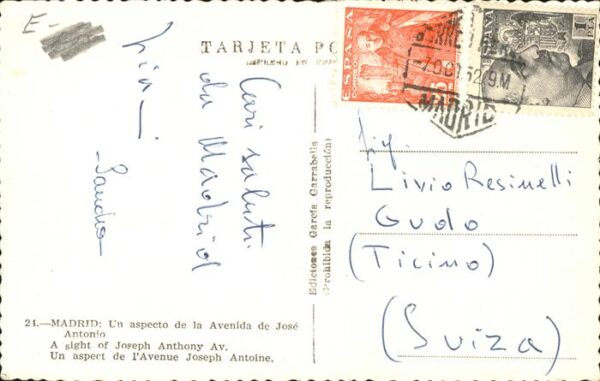 E-
TARJETA PO
Cari saluti
da Madrid
Sandro
ESPAÑA
CORREOS
MADRID
Ediciones García Garrabella
(Prohibida la reproducción)
Sig.
Livio Resinelli
Gudo
(Ticino)
(Sviza)
21.—MADRID: Un aspecto de la Avenida de José
Antonio
A sight of Joseph Anthony Av.
Un aspect de l'Avenue Joseph Antoine.